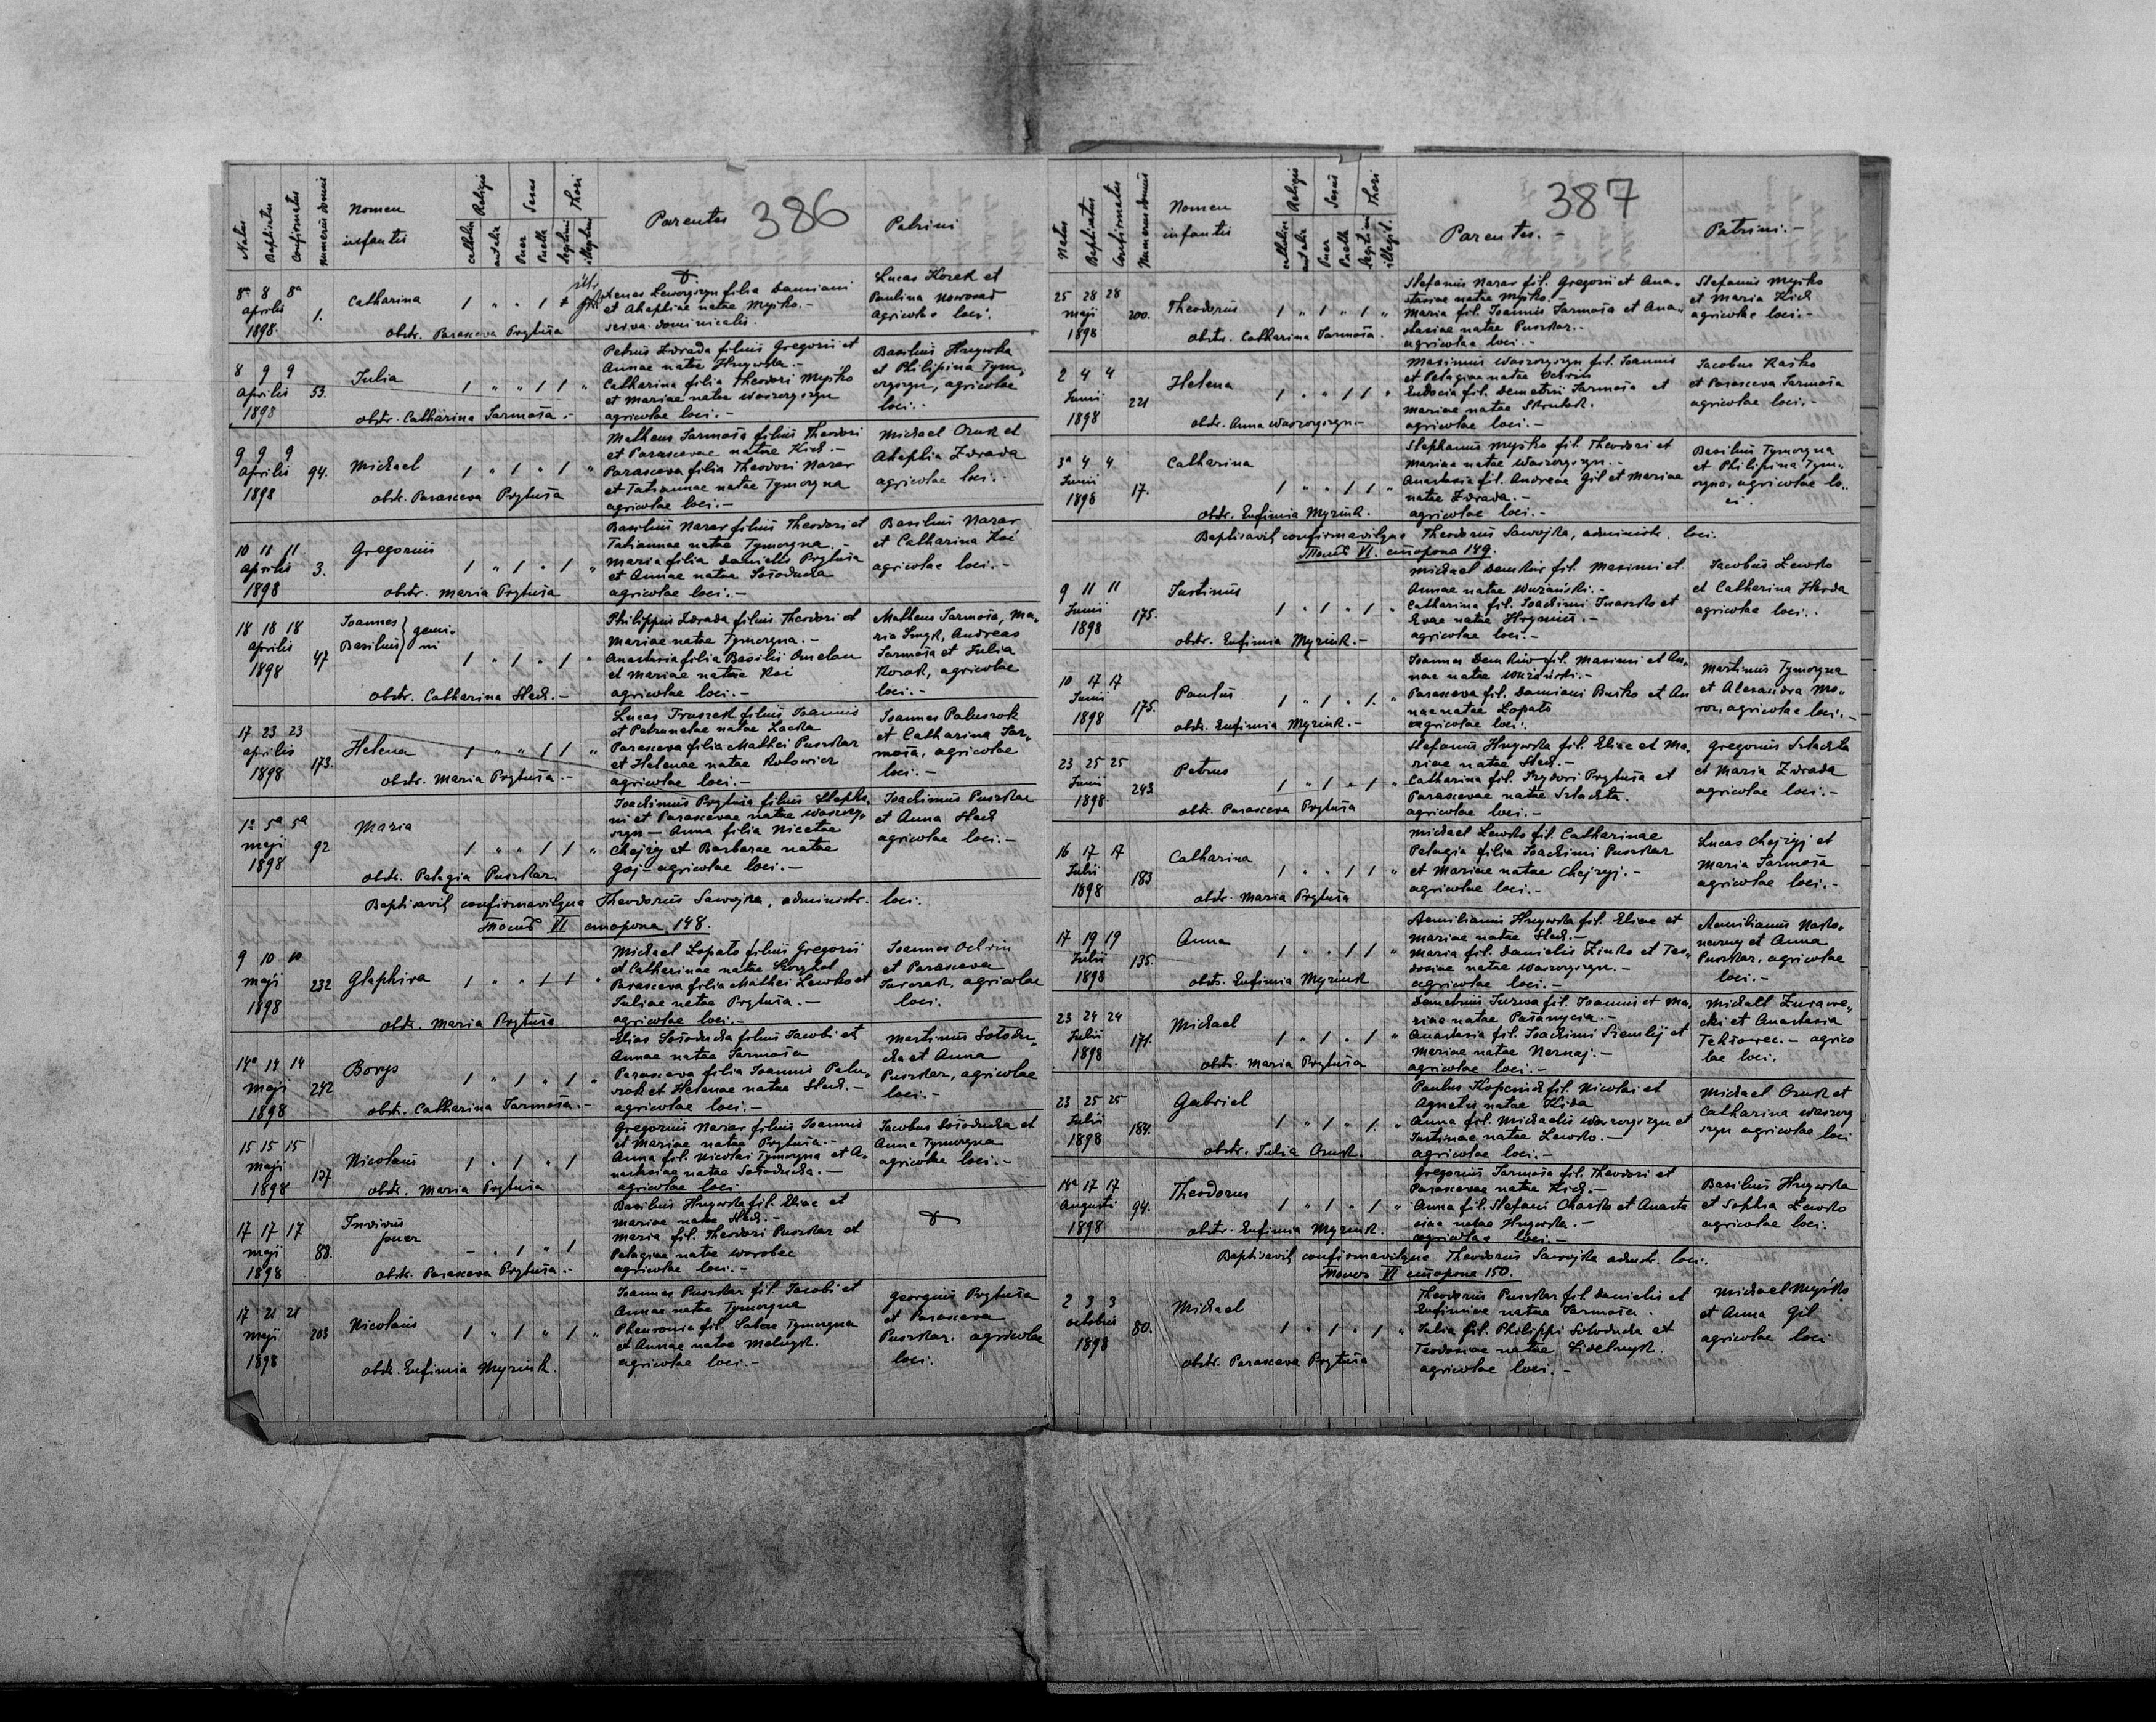 386
Natus
Baptisatus
Confirmatus
Numerus domus
Nomen
infantis
Religio
catholica
aut alia
Sexus
Puer
Puella
Thori
legitimi
illegitimi
Parentes
Patrini
8ª 8 8ª
Aprilis
1898.
1.
Catharina
obstr. Parasceva Prytuła
filia Damiani
et Ahaphiae natae Myśko.-
serva dominicalis.
Lucas Korek et
Paulina Nowosad
agricolae loci.
8 9 9
Aprilis
1898
53.
Julia
obstr. Catharina Jarmoła.-
Petrus Zdrada filius Gregorii et
Annae natae Hrywka.-
Catharina filia Theodori Myśko
et Mariae natae Waszczyszyn
agricolae loci.-
Basilius Hrywka
et Philipina Tym„
czyszyn, agricolae
loci.-
9 9 9
Aprilis
1898
94.
Michael
obstr. Parasceva Prytuła
Matheus Jarmoła filius Theodori
et Parascevae natae Kich.-
Parasceva filia Theodori Nazar
et Tatiannae natae Tymczyna
agricolae loci.-
Michael Ozuk et
Ahaphia Zdrada
agricolae loci.-
10 11 11
Aprilis
1898
3.
Gregorius
obstr. Maria Prytuła
Basilius Nazar filius Theodori et
Tatiannae natae Tymczyna.-
Maria filia Danielis Prytuła
et Annae natae Sołoducha
agricolae loci.-
Basilius Nazar
et Catharina Koć
agricolae loci.-
18 18 18
Aprilis
1898
47
Joannes } gemi-
Basilius } ni
obstr. Catharina Stech.-
Philippus Zdrada filius Theodori et
Mariae natae Tymczyna.-
Anastasia filia Basilii Omelan
et Mariae natae Koć
agricolae loci.-
Matheus Jarmoła, Ma„
ria Smyk, Andreas
Jarmoła et Julia
Korak, agricolae
loci.-
17 23 23
Aprilis
1898
173.
Helena
obstr. Maria Prytuła.-
Lucas Truszek filius Joannis
et Petrunelae natae Lacka
Parasceva filia Mathei Puszkar
et Helenae natae Kotowicz
agricolae loci.-
Joannes Paluszok
et Catharina Jar„
moła, agricolae
loci.-
1ª 5ª 5ª
Maji
1898
92
Maria
obstr. Pelagia Puszkar.
Joachimus Prytuła filius Stepha„
ni et Parascevae natae Waszczy„
szyn - Anna filia Nicetae
Chejzyj et Barbarae natae
Gaj - agricolae loci.-
Joachimus Puszkar
et Anna Stech
agricolae loci.-
Baptisavit confirmavitque Theodorus Sawojka, administr. loci.
Томъ VI сторона 148.
9 10 10
Maji
1898
232
Glaphira
obstr. Maria Prytuła
Michael Lopato filius Gregorii
et Catharinae natae
Parasceva filia Mathei Lewko et
Juliae natae Prytuła.-
agricolae loci.-
Joannes Ochrin
et Parasceva
agricolae
loci.
14ª 14 14
Maji
1898
242
Borys
obstr. Catharina Jarmoła.-
Elias Sołoducha filius Jacobi et
Annae natae Jarmoła
Parasceva filia Joannis Palu„
szok et Helenae natae Stech.-
agricolae loci.-
Martinus Sołodu„
cha et Anna
Puszkar, agricolae
loci.-
15 15 15
Maji
1898
137
Nicolaus
obstr. Maria Prytuła
Gregorius Nazar filius Joannis
et Mariae natae Prytuła.-
Anna fil. Nicolai Tymczyna et A„
nastasiae natae Sołoducha.-
agricolae loci
Jacobus Sołoducha et
Anna Tymczyna
agricolae loci.-
17 17 17
Maji
1898
88.
Invivus
puer
obstr. Parasceva Prytuła.-
Basilius Hrywka fil. Eliae et
Mariae natae Stech.-
Maria fil. Theodori Puszkar et
Pelagiae natae Worobec
agricolae loci.-
17 21 21
Maji
1898
203
Nicolaus
obstr. Eufimia Myzink.
Joannes Puszkar fil. Jacobi et
Annae natae Tymczyna
Phewronia fil. Sabae Tymczyna
et Annae natae Melnyk.
agricolae loci.-
Georgius Prytuła
et Parasceva
Puszkar, agricolae
loci.
387
Natus
Baptisatus
Confirmatus
Numerus domus
Nomen
infantis
Religio
catholica
aut alia
Sexus
Puer
Puella
Thori
legitimi
illegit.
Parentes.-
Patrini.-
25 28 28
Maji
1898
200.
Theodorus
obstr. Catharina Jarmoła.
Stefanus Nazar fil. Gregorii et Ana„
stasiae natae Myśko.-
Maria fil. Joannis Jarmoła et Ana„
stasiae natae Puszkar.-
agricolae loci.-
Stefanus Myśko
et Maria Kich
agricolae loci.-
2 4 4
Junii
1898
221
Helena
obstr. Anna Waszczyszyn.-
Maximus Waszczyszyn fil. Joannis
et Pelagiae natae Ochrin
Eudocia fil. Demetrii Jarmoła et
Mariae natae
agricolae loci.-
Jacobus Kaśko
et Parasceva Jarmoła
agricolae loci.-
3ª 4 4
Junii
1898
17.
Catharina
obstr. Eufimia Myzink.
Stephanus Myśko fil. Theodori et
Mariae natae Waszczyszyn.-
Anastasia fil. Andreae Gil et Mariae
natae Zdrada.-
agricolae loci.-
Basilius Tymczyna
et Philipina Tym„
czyna, agricolae lo„
ci.
Baptisavit confirmavitque Theodorus Sawojka, administr. loci.
Томъ VI. сторона 149.
9 11 11
Junii
1898
175.
Justinus
obstr. Eufimia Myzink.-
Michael Demkiw fil. Maximi et
Annae natae Wużański.-
Catharina fil. Joachimi Iwaszko et
Evae natae Hrymus.-
agricolae loci.-
Jacobus Lewko
et Catharina Horda
agricolae loci.-
10 17 17
Junii
1898
175.
Paulus
obstr. Eufimia Myzink.-
Joannes Demkiw fil. Maximi et An„
nae natae Wużański.-
Parasceva fil. Damiani Busko et An
nae natae Lopato
agricolae loci.
Martinus Tymczyna
et Alexandra Mo„
roz, agricolae loci.-
23 25 25
Junii
1898.
243
Petrus
obstr. Parasceva Prytuła
Stefanus Hrywka fil. Eliae et Ma„
riae natae Stech.-
Catharina fil. Isydori Prytuła et
Parascevae natae Szlachta.
agricolae loci.-
Gregorius Szlachta
et Maria Zdrada
agricolae loci.-
16 17 17
Julii
1898
183
Catharina
obstr. Maria Prytuła
Michael Lewko fil. Catharinae
Pelagia filia Joachimi Puszkar
et Mariae natae Chejzyj.-
agricolae loci.-
Lucas Chejzyj et
Maria Jarmoła
agricolae loci.-
17 19 19
Julii
1898
135.
Anna
obstr. Eufimia Myzink
Aemilianus Hrywka fil. Eliae et
Mariae natae Stech.-
Maria fil. Danielis Zinko et Teo„
dosiae natae Waszczyszyn.-
agricolae loci.-
Aemilianus Nasko„
neczny et Anna
Puszkar, agricolae
loci.-
23 24 24
Julii
1898
171.
Michael
obstr. Maria Prytuła
Demetrius Surma fil. Joannis et Ma„
riae natae Pałamycia.-
Anastasia fil. Joachimi Siemkij et
Mariae natae Nernaj.-
agricolae loci.-
Michael Zurawe„
cki et Anastasia
agrico
lae loci.
23 25 25
Julii
1898
184.
Gabriel
obstr. Julia Ozuk.
Paulus Kopczuk fil. Nicolai et
Agnetis natae Kida
Anna fil. Michaelis Waszczyszyn et
Justinae natae Lewko.-
agricolae loci.-
Michael Ozuk et
Catharina Waszczy
szyn agricolae loci
14ª 17 17
Augusti
1898.
94.
Theodorus
obstr. Eufimia Myzink.
Gregorius Jarmoła fil. Theodori et
Parascevae natae Kich.-
Anna fil. Stefani Chasko et Anasta
siae natae Hrywka.-
agricolae loci.-
Basilius Hrywka
et Sophia Lewko
agricolae loci.
Baptisavit confirmavitque Theodorus Sawojka admstr. loci.
Томъ VI сторона 150.
2 3 3
octobris
1898
80.
Michael
obstr. Parasceva Prytuła
Theodorus Puszkar fil. Danielis et
Eufimiae natae Jarmoła.
Julia fil. Philippi Sołoducha et
Teodosiae natae Sidelnyk.
agricolae loci.-
Michael Myśko
et Anna Gil
agricolae loci